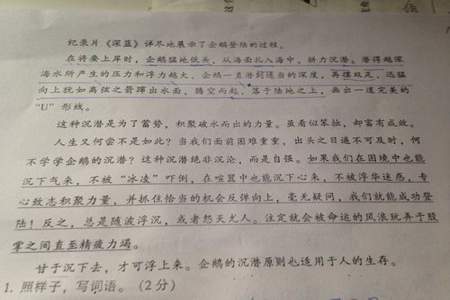 纪录片《深蓝》详尽地展示了企鹅登陆的过程。
在将要上岸时，企鹅猛地低头，从海面扎入海中，拼力沉潜。潜得越深，
海水所产生的压力和浮力越大，企鹅一直潜到适当的深度，再摆双足，迅猛
向上犹如离弦之箭蹿出水面，腾空而起，落于陆地之上，画出一道完美的
“U”形线。
这种沉潜是为了蓄势，积聚破水而出的力量。虽看似笨拙，却富有成效。
人生又何尝不是如此？当我们面前困难重重，出头之日遥不可及时，何
不学学企鹅的沉潜？这种沉潜绝非沉沦，而是自强。如果我们在困境中也能
沉下气来，不被“冰凌”吓倒，在喧嚣中也能沉下心来，不被浮华迷惑，专
心致志积聚力量，并抓住恰当的机会反弹向上，毫无疑问，我们就能成功登
陆！反之，总是随波浮沉，或者怨天尤人。注定就会被命运的风浪玩弄于股
掌之间直至精疲力竭。
甘于沉下去，才可浮上来。企鹅的沉潜原则也适用于人的生存。
1. 照样子，写词语。（2分）